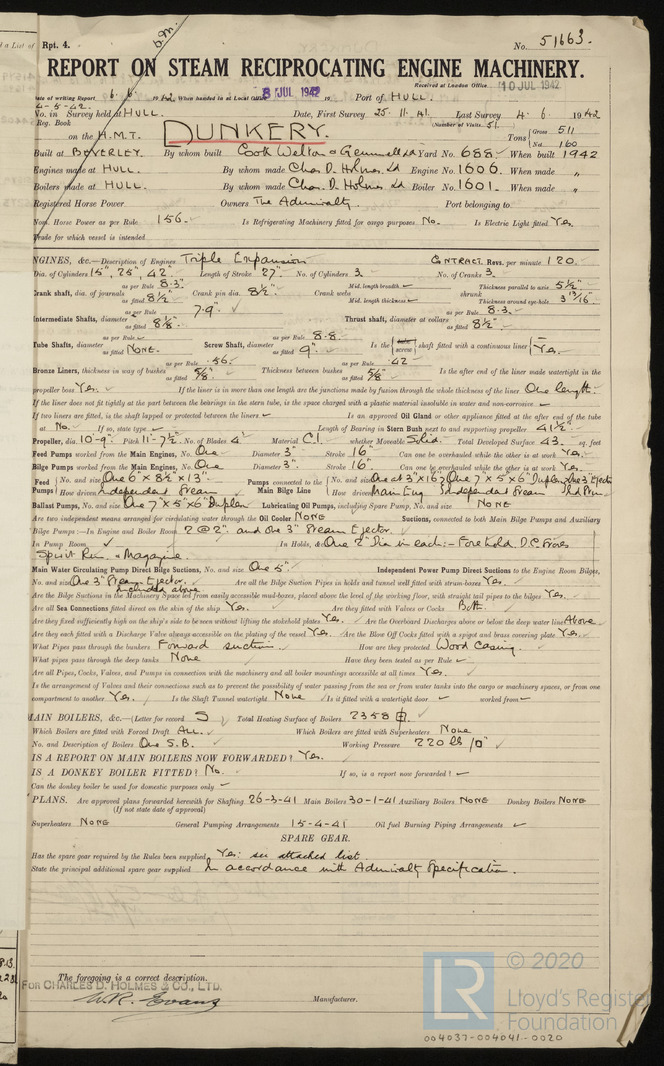 Rpt. 4.
No. 51663.
REPORT ON STEAM RECIPROCATING ENGINE MACHINERY.
Received at London Office 10 JUL 1942
Date of writing Report 6. 6. 1942 When handed in at Local Office 8 JUL 1942 19 Port of HULL.
4-5-42.
No. in Survey held at HULL. Date, First Survey 25. 11. 41. Last Survey 4. 6. 1942
Reg. Book (Number of Visits 51)
on the H.M.T. DUNKERY. Tons Gross 511
Net 160
Built at BEVERLEY. By whom built Cook Welton & Gemmell Ld Yard No. 688. When built 1942
Engines made at HULL. By whom made Chas. D. Holmes Ld Engine No. 1606. When made "
Boilers made at HULL. By whom made Chas. D. Holmes Ld Boiler No. 1601. When made "
Registered Horse Power Owners The Admiralty. Port belonging to
Nom. Horse Power as per Rule 156. Is Refrigerating Machinery fitted for cargo purposes No. Is Electric Light fitted Yes.
Trade for which vessel is intended
ENGINES, &c.—Description of Engines Triple Expansion CONTRACT. Revs. per minute 120
Dia. of Cylinders 15", 25", 42" Length of Stroke 27" No. of Cylinders 3. No. of Cranks 3.
Crank shaft, dia. of journals as per Rule 8.3" as fitted 8½" Crank pin dia. 8½" Crank webs Mid. length breadth Mid. length thickness shrunk Thickness parallel to axis 5½" Thickness around eye-hole 3 13/16"
Intermediate Shafts, diameter as per Rule 7.9" as fitted 8⅛" Thrust shaft, diameter at collars as per Rule 8.3 as fitted 8½"
Tube Shafts, diameter as per Rule as fitted NONE. Screw Shaft, diameter as per Rule 8.8 as fitted 9" Is the tube screw shaft fitted with a continuous liner Yes.
Bronze Liners, thickness in way of bushes as per Rule .56 as fitted 5/8" Thickness between bushes as per Rule .42 as fitted 5/8" Is the after end of the liner made watertight in the
propeller boss Yes. If the liner is in more than one length are the junctions made by fusion through the whole thickness of the liner One length.
If the liner does not fit tightly at the part between the bearings in the stern tube, is the space charged with a plastic material insoluble in water and non-corrosive
If two liners are fitted, is the shaft lapped or protected between the liners Is an approved Oil Gland or other appliance fitted at the after end of the tube
at No. If so, state type Length of Bearing in Stern Bush next to and supporting propeller 41½"
Propeller, dia. 10-9" Pitch 11-7½" No. of Blades 4 Material C.I. whether Moveable Solid. Total Developed Surface 43. sq. feet
Feed Pumps worked from the Main Engines, No. One Diameter 3" Stroke 16" Can one be overhauled while the other is at work Yes.
Bilge Pumps worked from the Main Engines, No. One Diameter 3" Stroke 16" Can one be overhauled while the other is at work Yes.
Feed Pumps No. and size One 6" x 8½" x 13" How driven Independent Steam Pumps connected to the Main Bilge Line No. and size One at 3"x16", One 7"x5"x6" Duplex, One 3" Ejector How driven Main Eng Independent Steam
Ballast Pumps, No. and size One 7"x5"x6" Duplex Lubricating Oil Pumps, including Spare Pump, No. and size NONE
Are two independent means arranged for circulating water through the Oil Cooler NONE Suctions, connected to both Main Bilge Pumps and Auxiliary
Bilge Pumps :—In Engine and Boiler Room 2 @ 2". and One 3" Steam Ejector.
In Pump Room In Holds, &c. One 2" Dia in each:— Forehold. D.C. Stores
Spirit Rm. & Magazine.
Main Water Circulating Pump Direct Bilge Suctions, No. and size One 5" Independent Power Pump Direct Suctions to the Engine Room Bilges,
No. and size One 3" Steam Ejector. included above Are all the Bilge Suction Pipes in holds and tunnel well fitted with strum-boxes Yes.
Are the Bilge Suctions in the Machinery Space led from easily accessible mud-boxes, placed above the level of the working floor, with straight tail pipes to the bilges Yes.
Are all Sea Connections fitted direct on the skin of the ship Yes. Are they fitted with Valves or Cocks Both.
Are they fixed sufficiently high on the ship's side to be seen without lifting the stokehold plates Yes. Are the Overboard Discharges above or below the deep water line Above
Are they each fitted with a Discharge Valve always accessible on the plating of the vessel Yes. Are the Blow Off Cocks fitted with a spigot and brass covering plate Yes.
What Pipes pass through the bunkers Forward suctions. How are they protected Wood Casing.
What pipes pass through the deep tanks None Have they been tested as per Rule
Are all Pipes, Cocks, Valves, and Pumps in connection with the machinery and all boiler mountings accessible at all times Yes.
Is the arrangement of Valves and their connections such as to prevent the possibility of water passing from the sea or from water tanks into the cargo or machinery spaces, or from one
compartment to another Yes. Is the Shaft Tunnel watertight None Is it fitted with a watertight door worked from
MAIN BOILERS, &c.—(Letter for record S) Total Heating Surface of Boilers 2358
Which Boilers are fitted with Forced Draft ALL. Which Boilers are fitted with Superheaters None
No. and Description of Boilers One S.B. Working Pressure 220 lb/□"
IS A REPORT ON MAIN BOILERS NOW FORWARDED? Yes.
IS A DONKEY BOILER FITTED? No. If so, is a report now forwarded?
Can the donkey boiler be used for domestic purposes only
PLANS. Are approved plans forwarded herewith for Shafting 26-3-41 Main Boilers 30-1-41 Auxiliary Boilers NONE Donkey Boilers NONE
(If not state date of approval)
Superheaters NONE General Pumping Arrangements 15-4-41 Oil fuel Burning Piping Arrangements
SPARE GEAR.
Has the spare gear required by the Rules been supplied Yes: see attached list
State the principal additional spare gear supplied In accordance with Admiralty Specification.
The foregoing is a correct description.
FOR CHARLES D. HOLMES & CO., LTD.
W.R. Evans Manufacturer.
© 2020
LR
Lloyd's Register
Foundation
004037-004041-0020